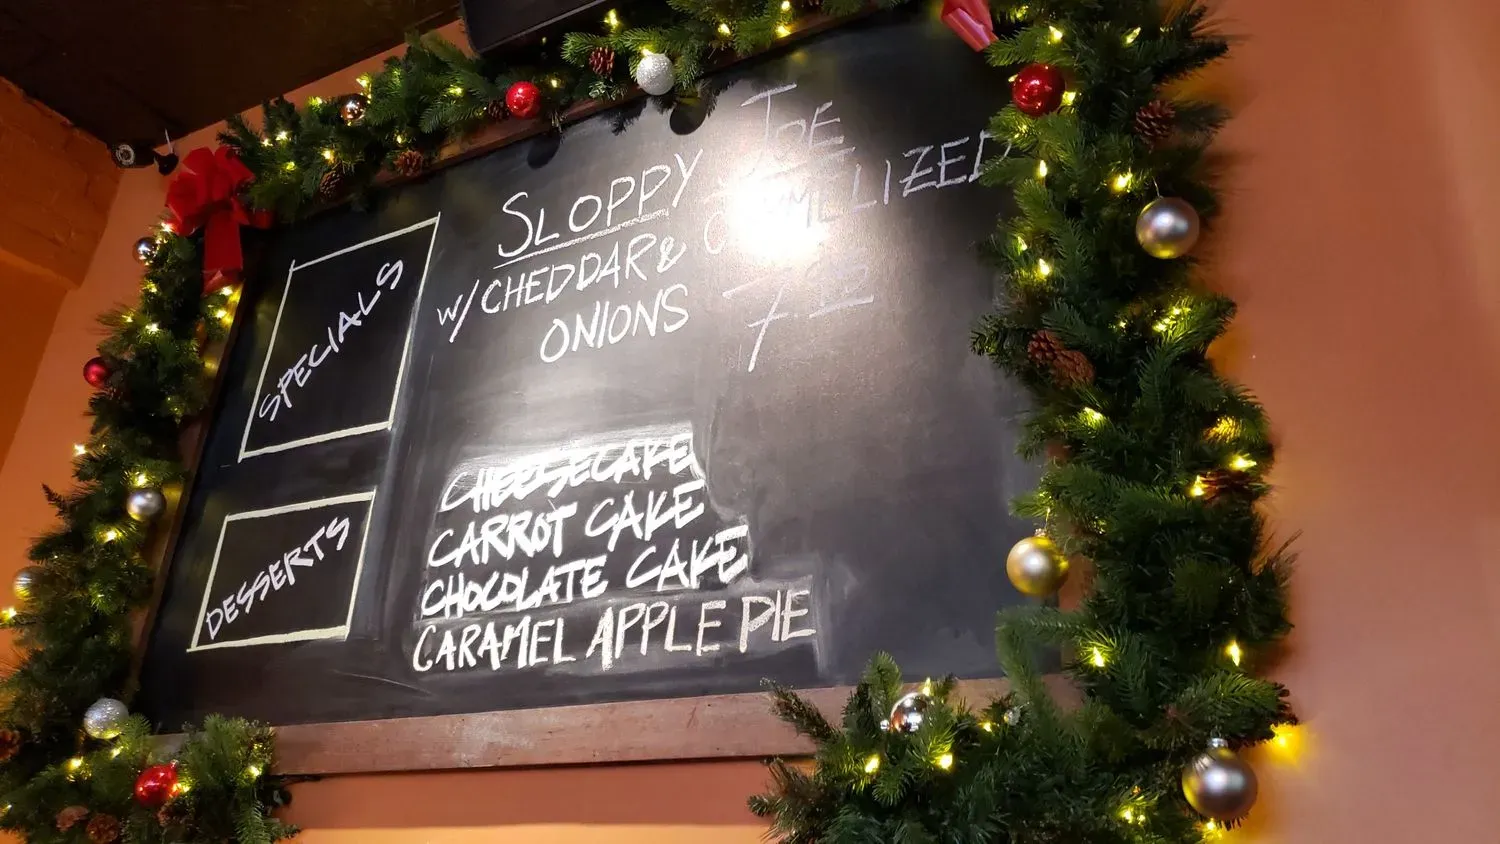 SPECIALS
SLOPPY JOE
W/ CHEDDAR & CARMELIZED
ONIONS
DESSERTS
CHEESECAKE
CARROT CAKE
CHOCOLATE CAKE
CARAMEL APPLE PIE